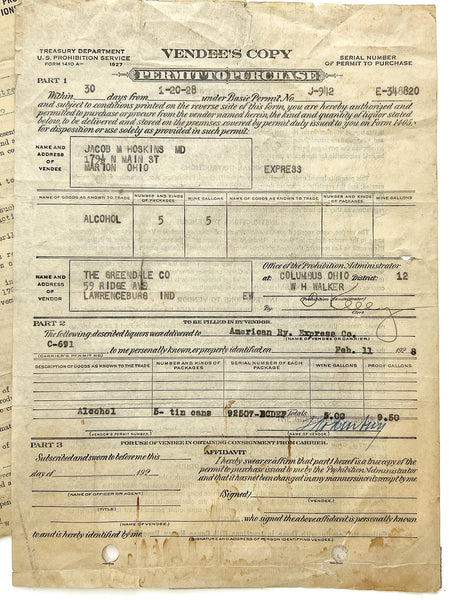 TREASURY DEPARTMENT
U.S. PROHIBITION SERVICE
FORM 1410 A— 1927
VENDEE'S COPY
SERIAL NUMBER
OF PERMIT TO PURCHASE
PERMIT TO PURCHASE
PART 1
30 1-20-28 J-912 E-348820
Within days from under Basic Permit No.
and subject to conditions printed on the reverse side of this form, you are hereby authorized and
permitted to purchase or procure from the vendor named herein, the kind and quantity of liquor stated
below, to be delivered and stored on the premises covered by permit duly issued to you on Form 1405,
for disposition or use solely as provided in such permit.
NAME AND
ADDRESS
OF
VENDEE
JACOB M HOSKINS MD
179½ N MAIN ST
MARION OHIO
EXPRESS
NAME OF GOODS AS KNOWN TO TRADE
NUMBER AND KINDS
OF PACKAGES
WINE GALLONS
NAME OF GOODS AS KNOWN TO TRADE
NUMBER AND KINDS
OF PACKAGES
WINE GALLONS
ALCOHOL 5 5
NAME AND
ADDRESS
OF
VENDOR
THE GREENDALE CO
59 RIDGE AVE
LAWRENCEBURG IND EW
Office of the Prohibition Administrator
at: COLUMBUS OHIO District: 12
W H WALKER
(Prohibition Administrator)
By:
Clerk
PART 2 TO BE FILLED IN BY VENDOR.
The following described liquors were delivered to American Ry. Express Co.
(NAME OF VENDEE OR CARRIER)
C-691, to me personally known, or properly identified on Feb. 11 1928
(CARRIER'S PERMIT NO.)
DESCRIPTION OF GOODS AS KNOWN TO THE TRADE.
NUMBER AND KINDS OF
PACKAGES
SERIAL NUMBER OF EACH
PACKAGE.
WINE GALLONS
PROOF GALLONS
Alcohol 5- tin cans 92507-BCDEF Totals: 5.00 9.50
(VENDOR'S PERMIT NUMBER)
(NAME OF VENDOR)
PART 3 FOR USE OF VENDEE IN OBTAINING CONSIGNMENT FROM CARRIER.
AFFIDAVIT
Subscribed and sworn to before me this
day of 192
I hereby swear or affirm that part 1 hereof is a true copy of the
permit to purchase issued to me by the Prohibition Administrator
and that it has not been changed in any manner since its receipt by me.
(NAME OF OFFICER OR AGENT)
(Signed)
(TITLE)
VENDEE.
, who signed the above affidavit is personally known
(NAME OF VENDEE)
to and is hereby identified by me
(SIGNATURE AND ADDRESS OF PERSON IDENTIFYING VENDEE)